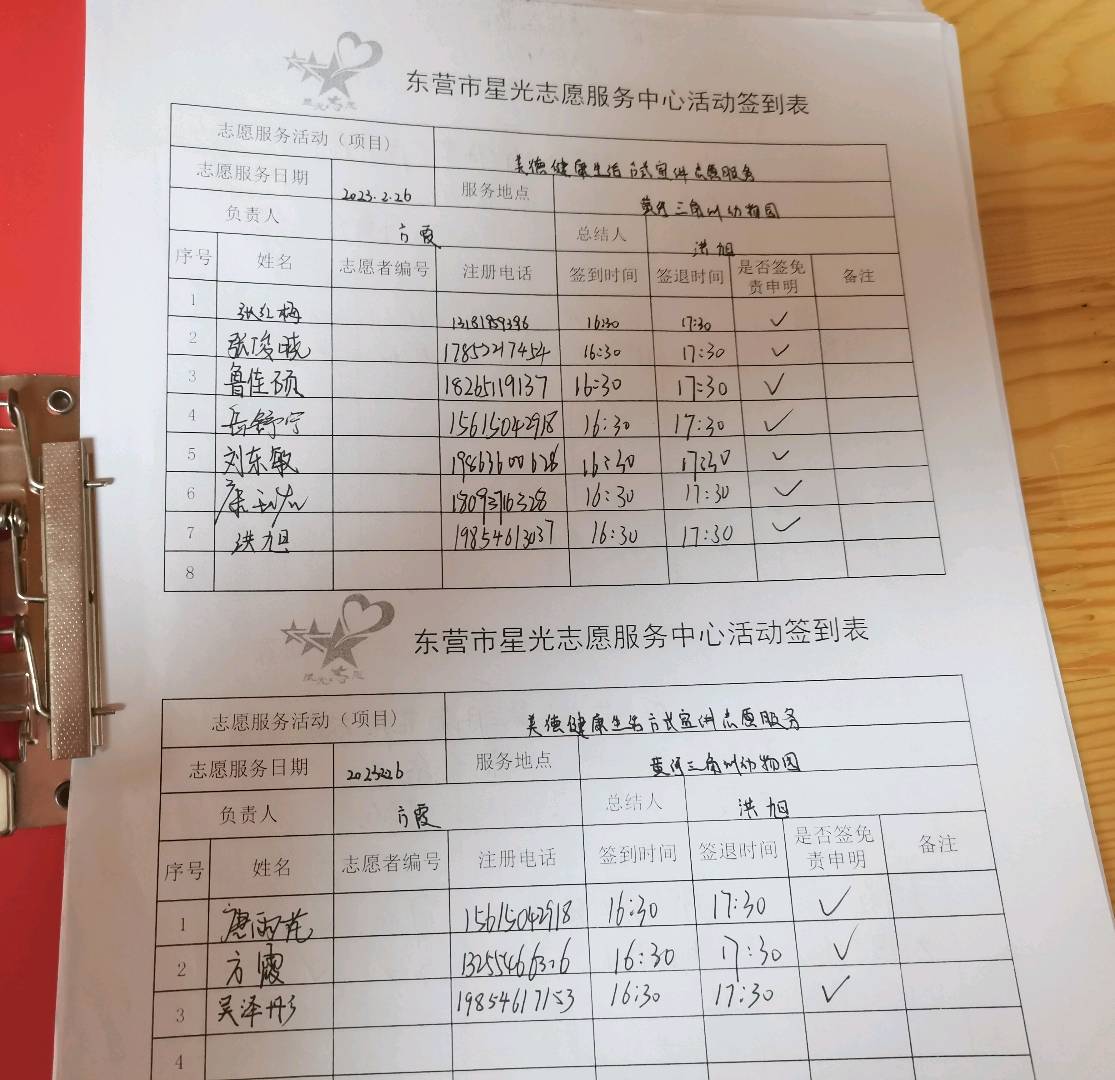 东营市星光志愿服务中心活动签到表
志愿服务活动（项目） 美德健康生活方式宣传志愿服务
志愿服务日期 2023.2.26 服务地点 黄河三角洲动物园
负责人 方霞 总结人 洪旭
序号 姓名 志愿者编号 注册电话 签到时间 签退时间 是否签免责申明 备注
1 张红梅 16:30 17:30 ✓
2 张俊晓 17852217454 16:30 17:30 ✓
3 鲁佳硕 18265119137 16:30 17:30 ✓
4 岳舒宁 15615042918 16:30 17:30 ✓
5 刘东敏 19863600628 16:30 17:30 ✓
6 18093716328 16:30 17:30 ✓
7 洪旭 19854613037 16:30 17:30 ✓
8
东营市星光志愿服务中心活动签到表
志愿服务活动（项目） 美德健康生活方式宣传志愿服务
志愿服务日期 2023226 服务地点 黄河三角洲动物园
负责人 方霞 总结人 洪旭
序号 姓名 志愿者编号 注册电话 签到时间 签退时间 是否签免责申明 备注
1 15615042918 16:30 17:30 ✓
2 方霞 16:30 17:30 ✓
3 吴泽彤 19854617153 16:30 17:30 ✓
4